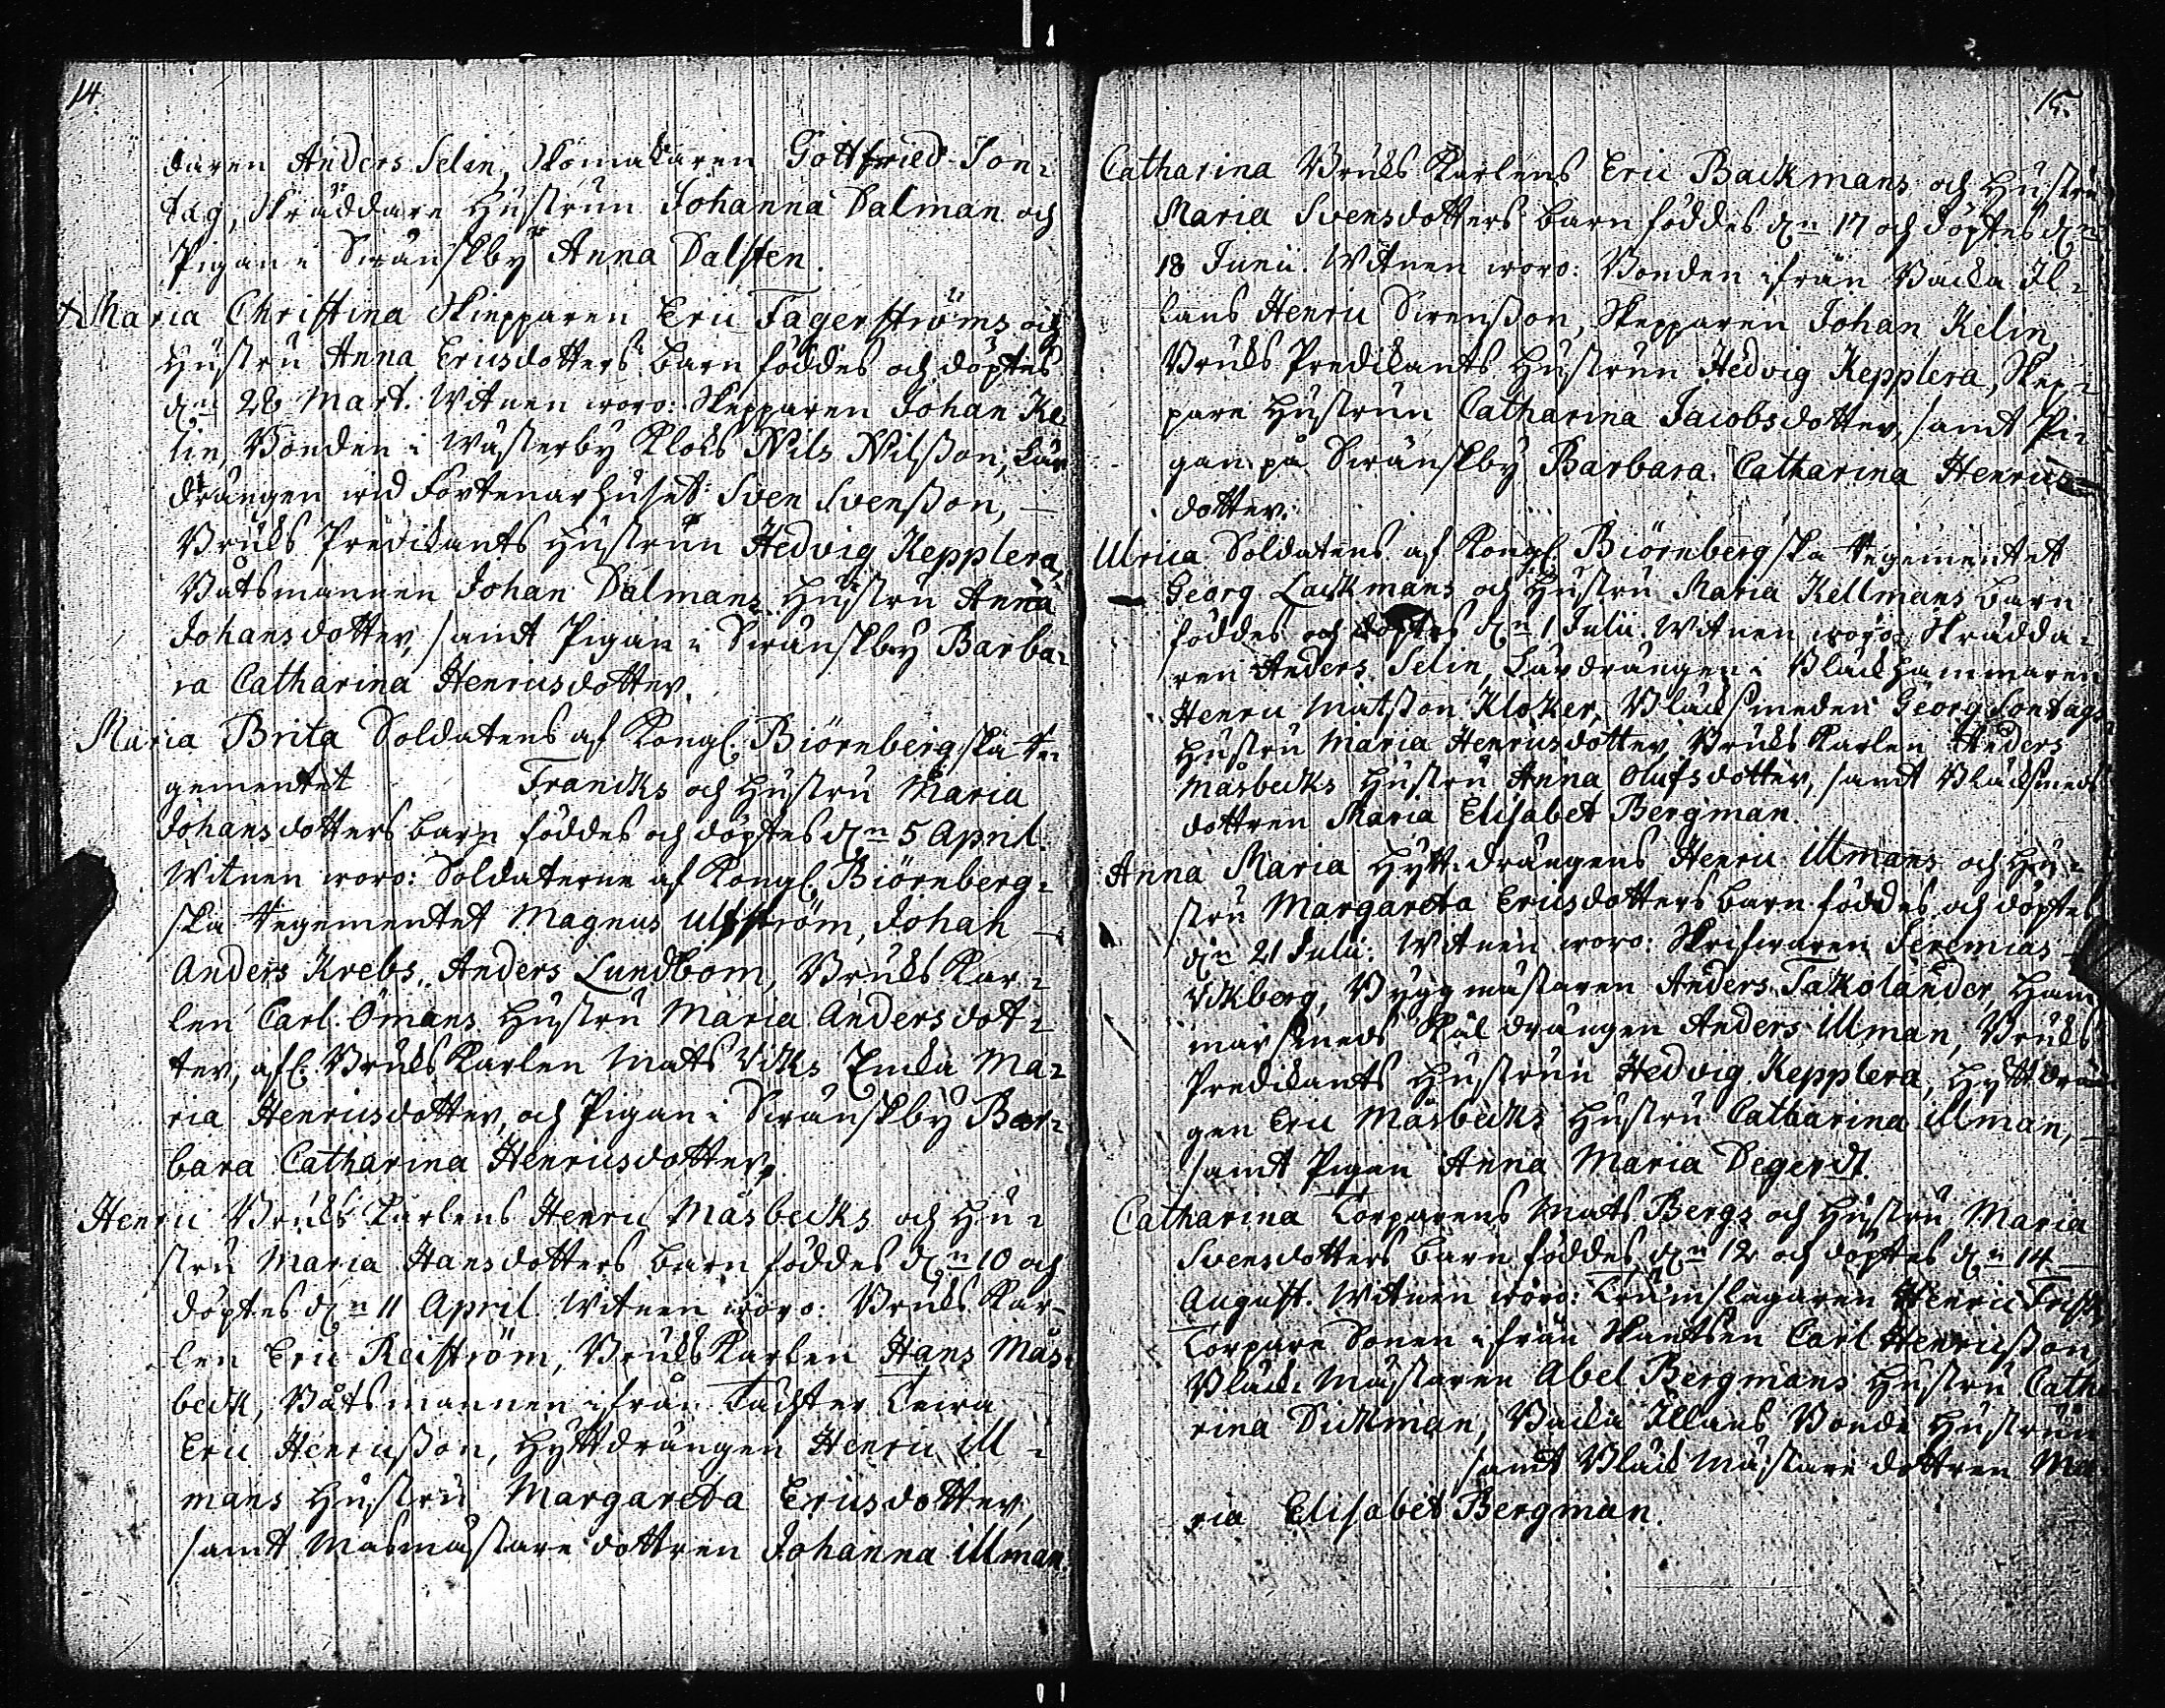 14.
daren Anders Selin, Skomakaren Gottfried Son-
tag, Skräddare Hustrun Johanna Dalman och
Pigan i Swänskby Anna Dalsten.
+ Maria Christina Skiepparen Eric Fagerströms och
Hustru Anna Ericsdotters barn föddes och döptes
d. 28 Mart. Witnen woro: Skepparen Johan Ke-
lin, Bonden i Wästerby Klocks Nils Nilsson,
drängen wid Svenßon,
Bruks Predikants Hustrun Hedvig Kepplera,
Båtsmannen Johan Dalmans Hustru Anna
Johansdotter, samt Pigan i Swänskby Barba-
ra Catharina Henricsdotter.
Maria Brita Soldatens af Kongl. Biörnebergska Re-
gementet Francks och Hustru Maria
Johansdotters barn föddes och döptes dn 5 April.
Witnen woro: Soldaterne af Kongl. Biörneberg-
ska Regementet Magnus Ulfström, Johan
Anders Krebs, Anders Lundbom, Bruks Kar-
len Carl Ömans Hustru Maria Andersdot-
ter, afl. Bruks Karlen Mats Viks Encka Ma-
ria Henricsdotter, och Pigan i Swänskby Bar-
bara Catharina Henricsdotter.
Henric Bruks Karlens Henric Måsbecks och Hu-
stru Maria Hansdotters barn föddes dn 10 och
döptes dn 11 April. Witnen woro: Bruks Kar-
len Eric Reiström, Bruks Karlen Hans Mås-
beck, Båtsmannen ifrån Tächter
Eric Henricßon, Hyttdrängen Henric Ill-
mans Hustru Margareta Ericsdotter,
samt Masmästare dottren Johanna Illman.
15.
Catharina Bruks Karlens Eric Backmans och Hustru
Maria Svensdotters barn föddes dn 17 och döptes dn
18 Junii. Witnen woro: Bonden ifrån Backa Il-
lans Henric Sirenßon, Skepparen Johan Kelin,
Bruks Predikants Hustrun Hedvig Kepplera, Skep-
pare Hustrun Catharina Jacobsdotter, samt Pi-
gan på Swänskby Barbara Catharina Henrics-
dotter.
Ulrica Soldatens af Kongl. Biörnebergska Regementet
Georg Lackmans och Hustru Maria Kellmans barn
föddes och döptes dn 1 Julii. Witnen woro: Skrädda-
ren Anders Selin, Lärdrängen i Bläckhammaren
Henric Matsson Kloker, Bläcksmeden Georg Sontags
Hustru Maria Henricsdotter, Bruks Karlen Anders
Måsbecks Hustru Anna Olufsdotter, samt Bläcksmeds
dottren Maria Elisabet Bergman.
Anna Maria Hyttdrängens Henric Illmans och Hu-
stru Margareta Ericsdotters barn föddes och döptes
dn 21 Julii. Witnen woro: Skrifwaren Jeremias
Vikberg, Byggmästaren Anders Takolander, Ham-
marsmeds Kåldrängen Anders Illman, Bruks
Predikants Hustrun Hedvig Kepplera, Hyttdrän-
gen Eric Måsbecks Hustru Catharina Illman,
samt Pigan Anna Maria Degerdt.
Catharina Torparens Mats Bergs och Hustru Maria
Svensdotters barn föddes dn 12 och döptes dn 14
August. Witnen woro: Trumslagaren Henric Frisk,
Torpare Sonen ifrån Skantsen Carl Henricßon,
Bläck Mästaren Abel Bergmans Hustru Catha-
rina Dickman, Backa Illans Bonde Hustrun
samt Bläck Mästare dottren Ma-
ria Elisabet Bergman.